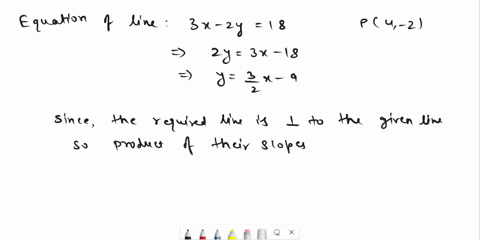 Equation of line: 3x-2y = 18 P(4,-2)
⇒ 2y = 3x-18
⇒ y = 3/2 x - 9
Since, the required line is ⊥ to the given line
so product of their slopes